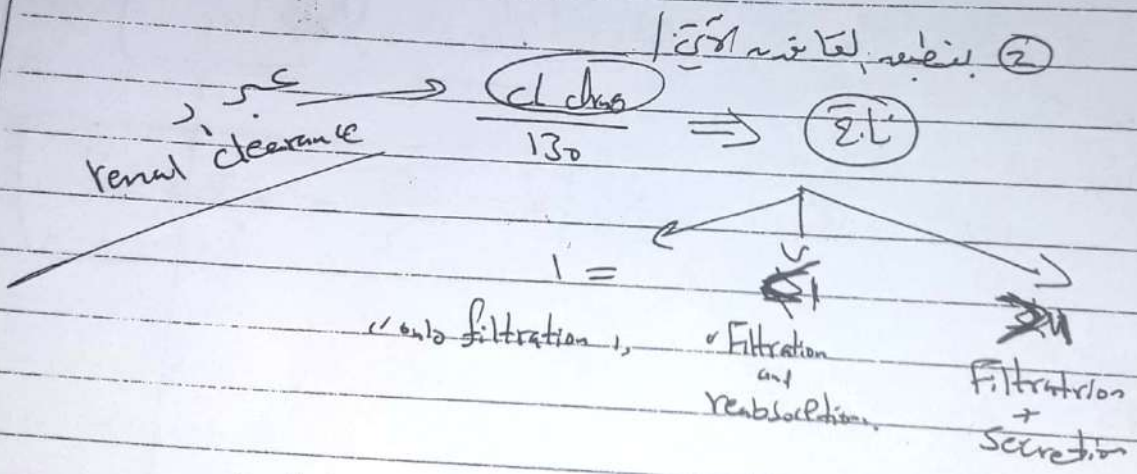 ② بنطبق العلاقة الآتية /
عبر د
renal clearance
cl drug
130
ناتج
1 =
<1
>1
" only filtration "
" Filtration
and
reabsorbtion "
Filtratrion
+
Secretion